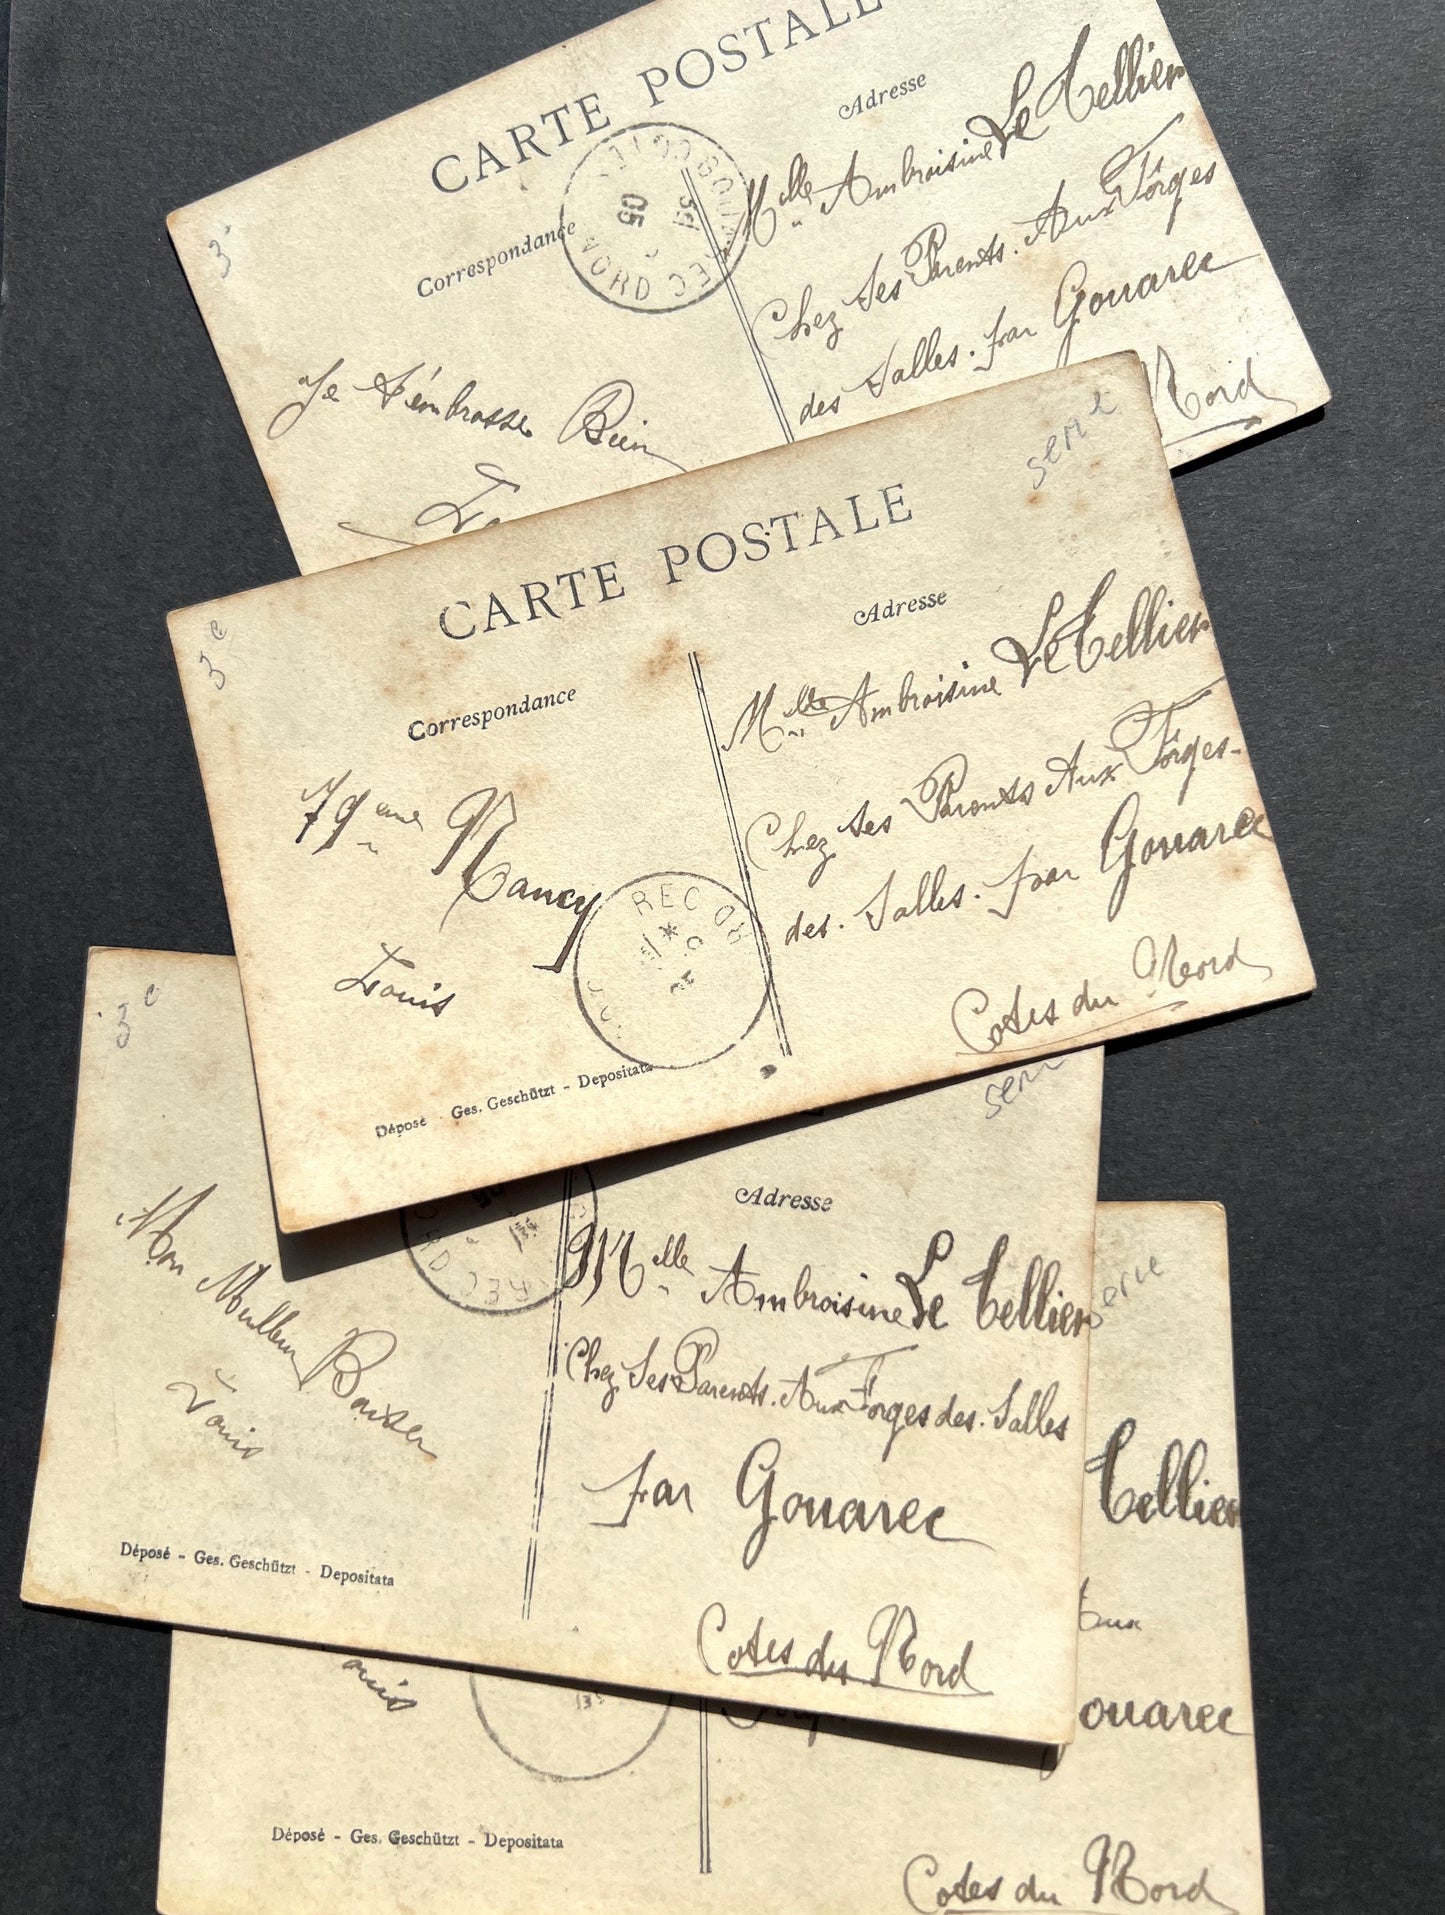 CARTE POSTALE
Adresse
Correspondance
05
NORD
3e
Mlle Ambroisine Le Tellier
Chez Ses Parents. Aux Forges
des Salles. par Gouarec
Nord
Je t'embrasse Bien
serie
CARTE POSTALE
Adresse
Correspondance
3e
79eme Nancy
Louis
REC
Mlle Ambroisine Le Tellier
Chez Ses Parents Aux Forges-
des. Salles. par Gouarec
Cotes du Nord
Déposé - Ges. Geschützt - Depositata
3e
Adresse
05
REC
Mon Meilleur Baiser
Louis
Mlle Ambroisine Le Tellier
Chez Ses Parents. Aux Forges des. Salles
par Gouarec
Cotes du Nord
Déposé - Ges. Geschützt - Depositata
serie
Tellier
Aux
ouarec
ouis
Cotes du Nord
Déposé - Ges. Geschützt - Depositata